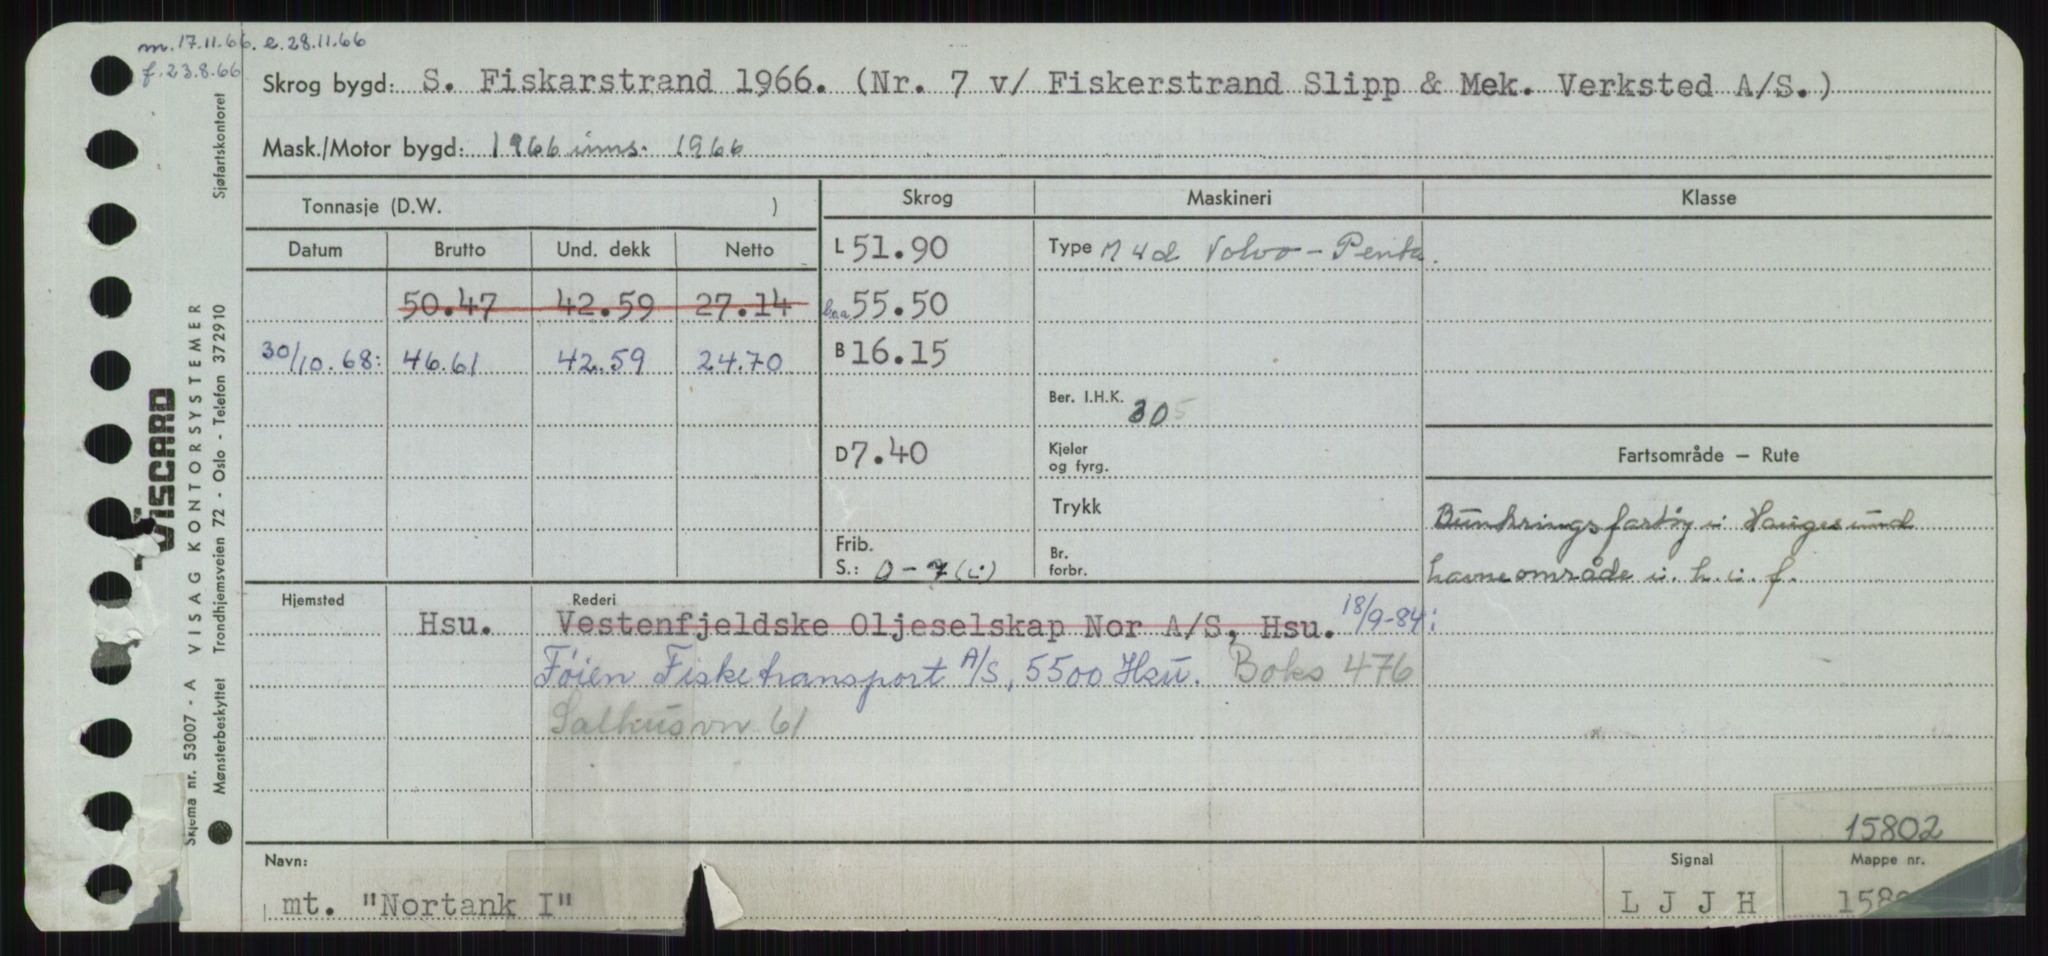 m. 17.11.66. e. 28.11.66
f. 23.8.66
Skrog bygd: S. Fiskarstrand 1966. (Nr. 7 v/ Fiskerstrand Slipp & Mek. Verksted A/S.)
Mask./Motor bygd: 1966 inns. 1966
Tonnasje (D.W. )
Skrog Maskineri Klasse
Datum Brutto Und. dekk Netto
L 51.90 Type M 4d Volvo-Penta.
50.47 42.59 27.14
b.o.a. 55.50
30/10.68: 46.61 42.59 24.70
B 16.15
Ber. I.H.K. 305
D 7.40 Kjeler og fyrg.
Fartsområde — Rute
Trykk
Bunkringsfartøy i Haugesund
Frib. S.: 0-7(i) Br. forbr.
havneområde i. h. i. f.
Hjemsted Rederi
Hsu. Vestenfjeldske Oljeselskap Nor A/S, Hsu. 18/9-84:
Føien Fisketransport A/S, 5500 Hsu. Boks 476
Salhusvn 61
15802
Navn: Signal Mappe nr.
mt. "Nortank I" L J J H 158
Sjøfartskontoret
VISCARD
VISAG KONTORSYSTEMER
Trondhjemsveien 72 - Oslo - Telefon 372910
Skjema nr. 53007 - A
Mønsterbeskyttet